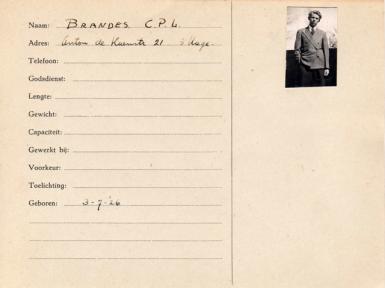 Naam: BRANDES C.P.L.
Adres: Anton de 21 's Hage.
Telefoon:
Godsdienst:
Lengte:
Gewicht:
Capaciteit:
Gewerkt bij:
Voorkeur:
Toelichting:
Geboren: 3-7-'26